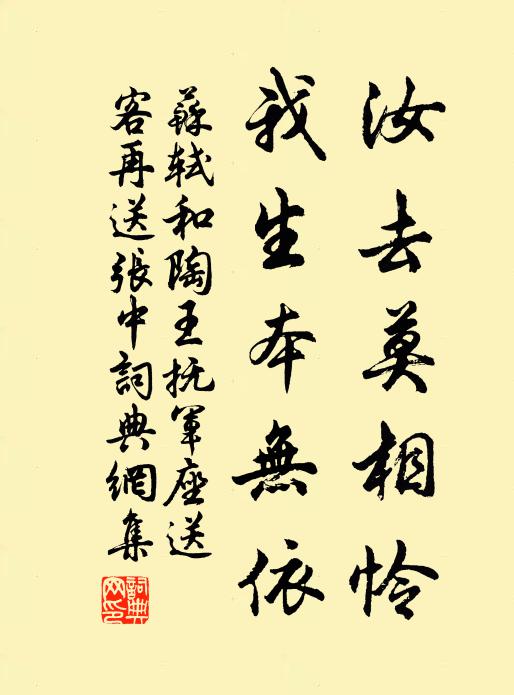 汝去莫相怜
我生本無依
蘇軾和陶王抚軍座送
客再送張中詞典網集
詞典网印